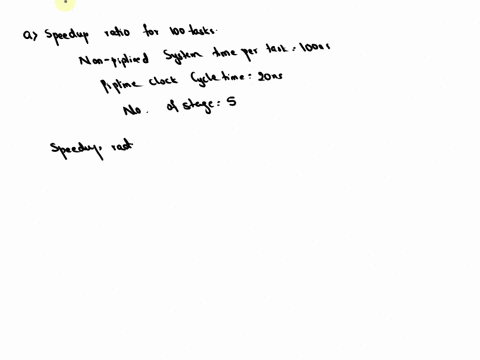 a) Speedup ratio for 100 tasks.
Non-piplined System time per task = 100ns
Piptime clock Cycle time: 20ns
No. of stage: 5
Speedup rat